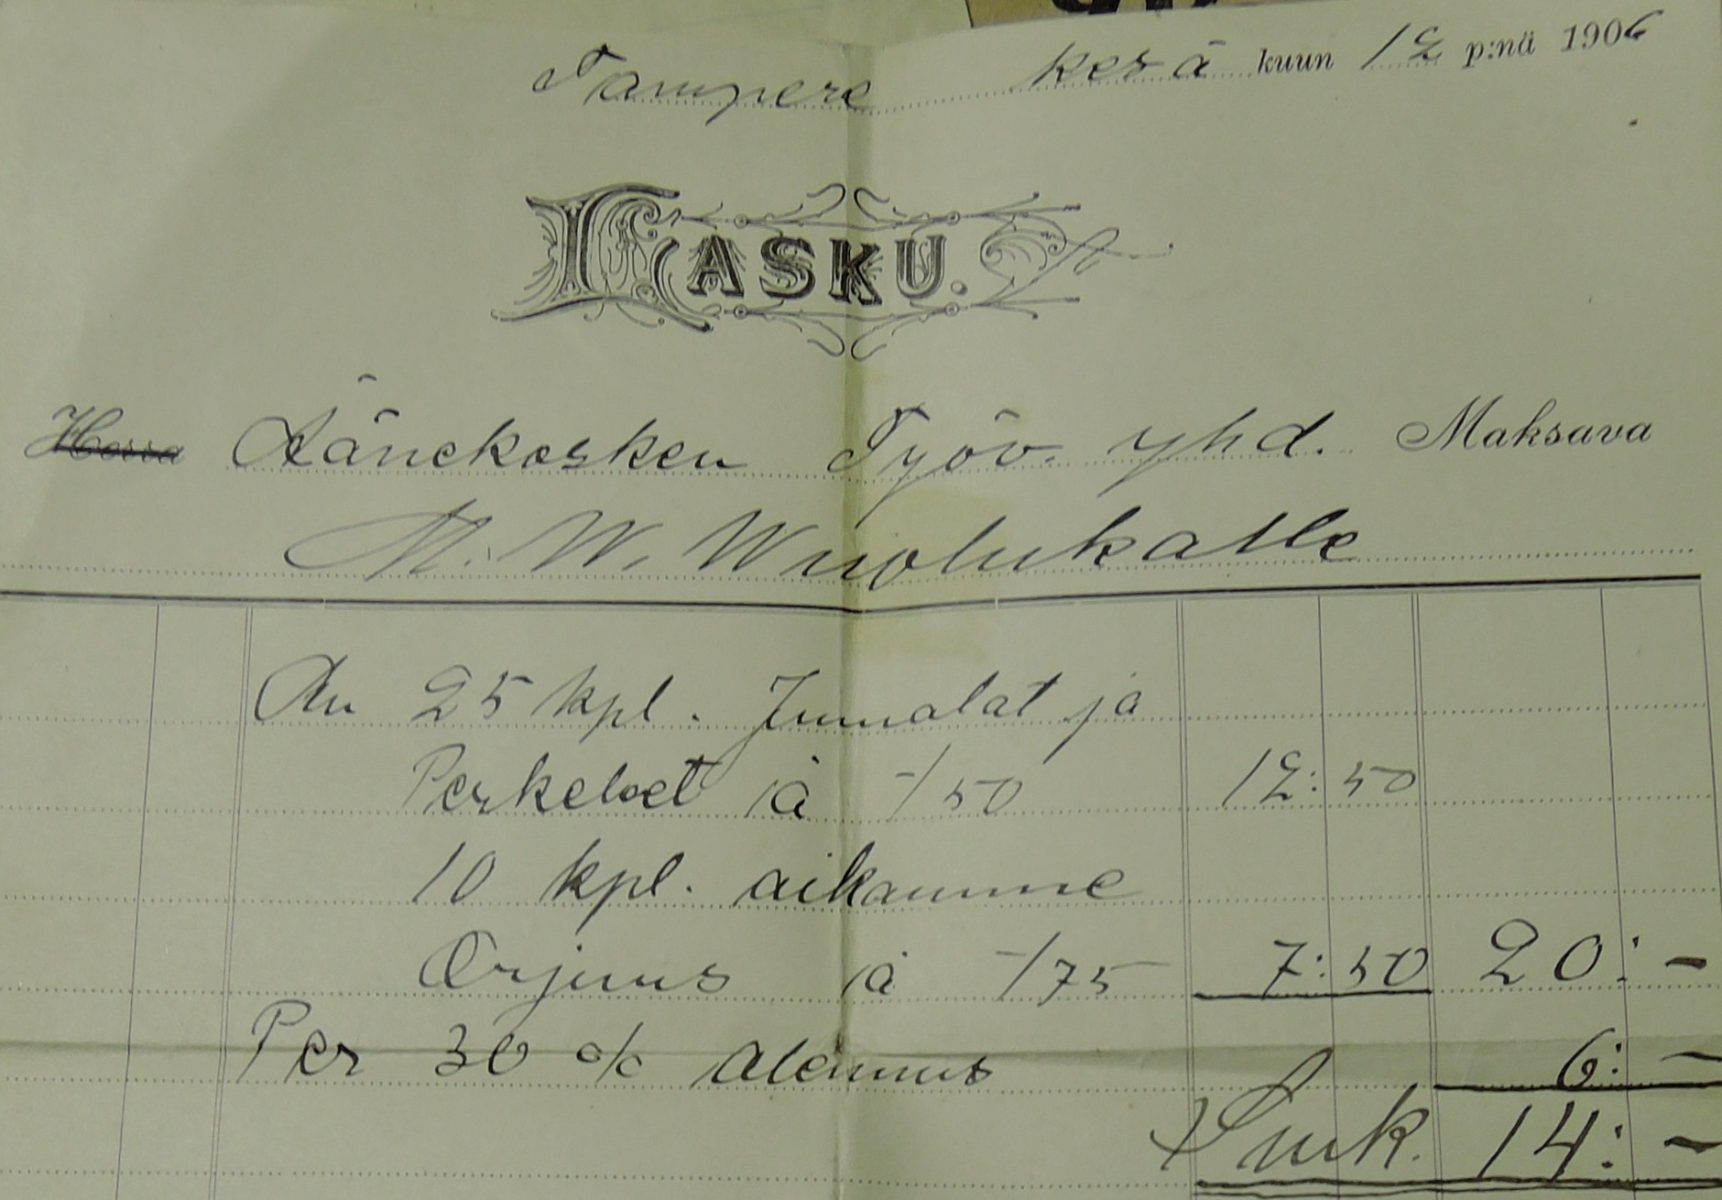 Tampere kesä kuun 12 p:nä 1906
LASKU.
Herra Äänekosken Työv. yhd. Maksava
M. W. Wuolukalle
An 25 kpl. Jumalat ja
Perkeleet à -/50 12:50
10 kpl. aikamme
Orjuus à -/75 7:50 20:-
Per 30 % alennus 6:-
Smk. 14:-